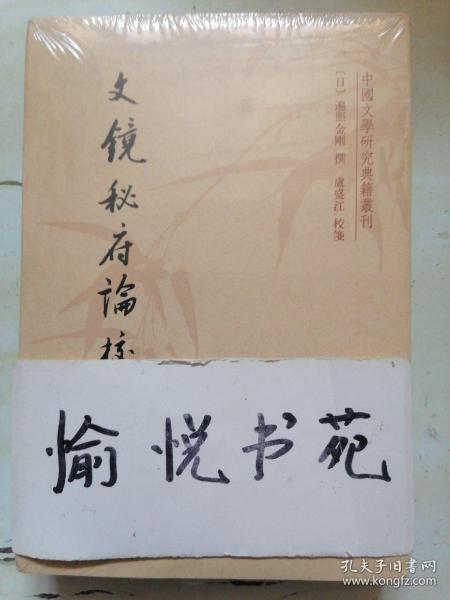 中國文學研究典籍叢刊
〔日〕遍照金剛 撰 盧盛江 校箋
文鏡秘府論校
愉悦书苑
孔夫子旧书网
www.kongfz.com